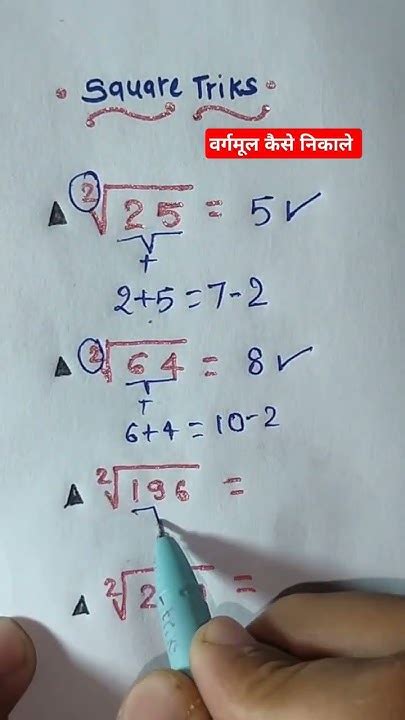 Square Triks
वर्गमूल कैसे निकाले
²√25 = 5 ✓
+
2+5=7-2
²√64 = 8 ✓
+
6+4=10-2
²√196 =
²√2 =